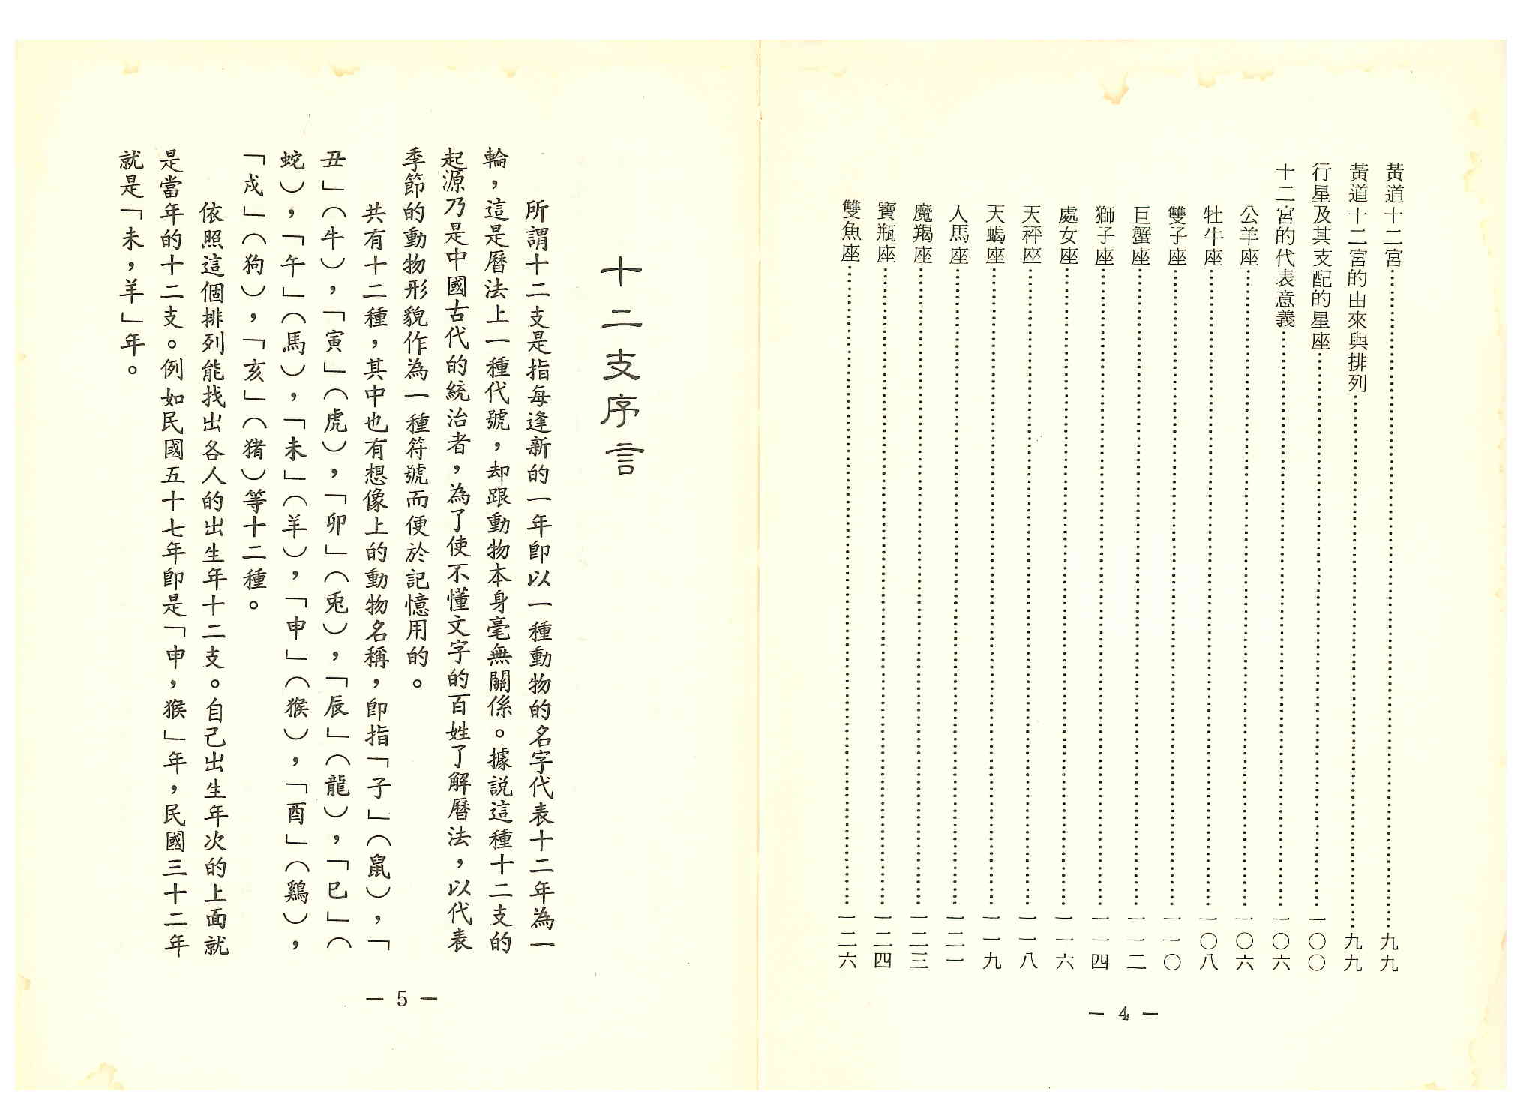 黃道十二宮……九九
黃道十二宮的由來與排列……九九
行星及其支配的星座……一〇〇
十二宮的代表意義……一〇六
公羊座……一〇六
牡牛座……一〇八
雙子座……一一〇
巨蟹座……一一二
獅子座……一一四
處女座……一一六
天秤座……一一八
天蝎座……一一九
人馬座……一二一
魔羯座……一二三
寶瓶座……一二四
雙魚座……一二六
— 4 —
十二支序言
所謂十二支是指每逢新的一年卽以一種動物的名字代表十二年為一
輪，這是曆法上一種代號，却跟動物本身毫無關係。據說這種十二支的
起源乃是中國古代的統治者，為了使不懂文字的百姓了解曆法，以代表
季節的動物形貌作為一種符號而便於記憶用的。
共有十二種，其中也有想像上的動物名稱，卽指「子」（鼠），「
丑」（牛），「寅」（虎），「卯」（兎），「辰」（龍），「巳」（
蛇），「午」（馬），「未」（羊），「申」（猴），「酉」（鷄），
「戍」（狗），「亥」（猪）等十二種。
依照這個排列能找出各人的出生年十二支。自己出生年次的上面就
是當年的十二支。例如民國五十七年卽是「申，猴」年，民國三十二年
就是「未，羊」年。
— 5 —